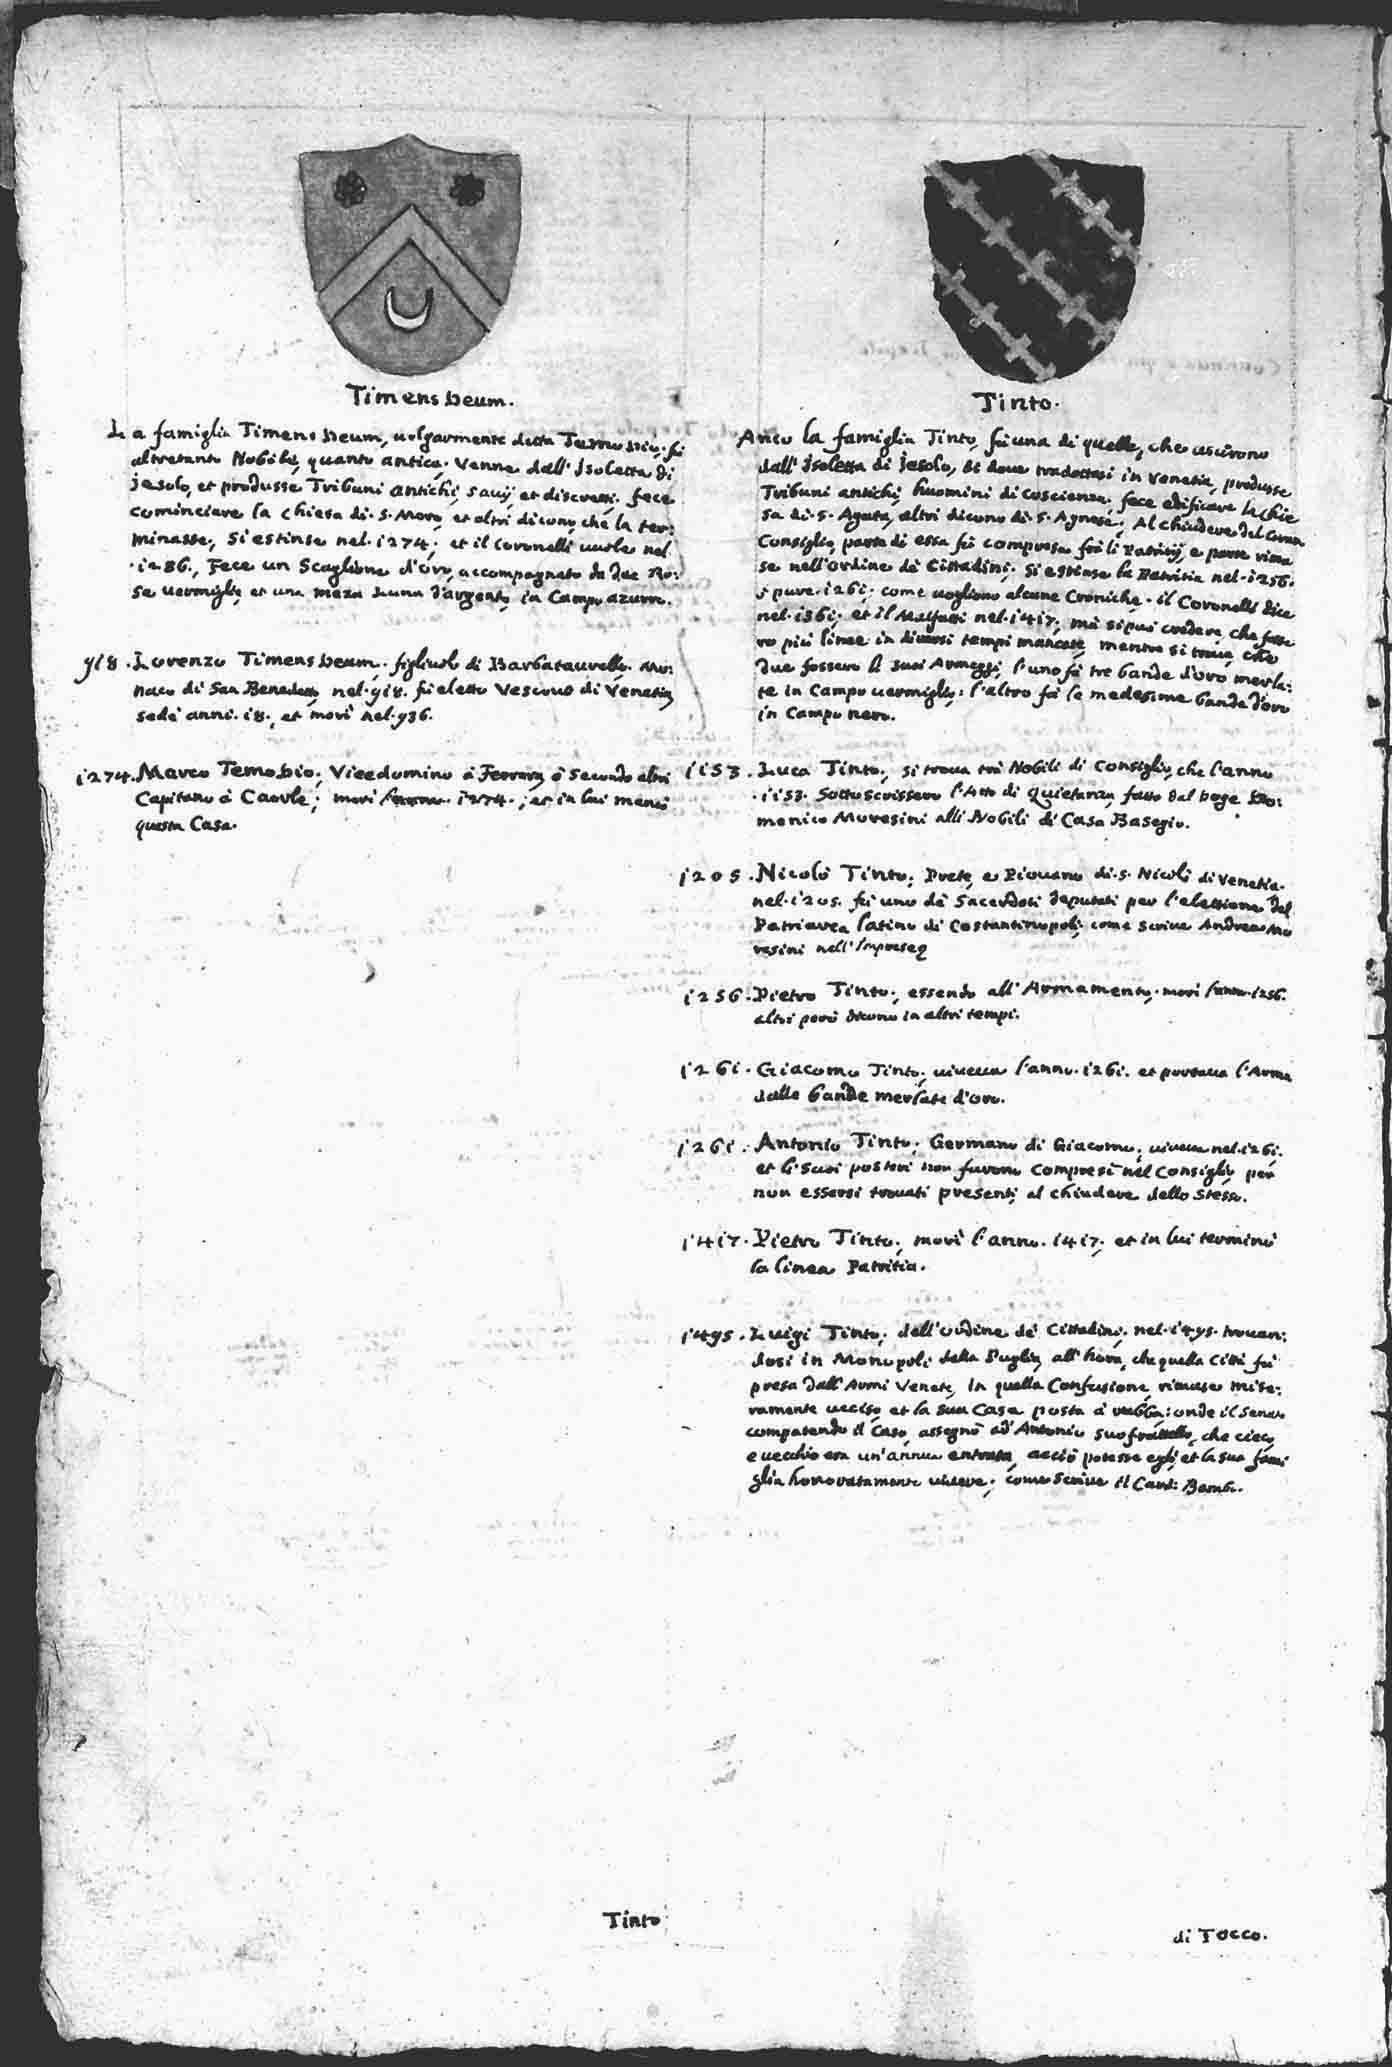 Timens Deum.
La famiglia Timens Deum, volgarmente detta Temodio, fù
altretanto Nobile, quanto antica. Venne dall' Isoletta di
Jesolo, et produsse Tribuni antichi, savij et discreti; fece
cominciare la chiesa di S. Moro, et altri dicono che la ter:
minasse; si estinse nel 1274; et il Coronelli vuole nel
1286., Fece un Scaglione d'oro, accompagnato da due Ro:
se vermiglie, et una meza Luna d'argento, in Campo azurro.
918. Lorenzo Timens Deum, figliuolo di Barbataurello, Mo:
naco di San Benedetto, nel 918. fù eletto Vescovo di Venetia,
sedè anni. 18., et morì nel 936.
1274. Marco Temodio; Vicedomino à Ferrara, ò secondo altri
Capitano à Caorle; morì l'anno 1274.; et in lui mancò
questa Casa.
Tinto
Tinto.
Anco la famiglia Tinto, fù una di quelle, che uscirono
dall' Isoletta di Jesolo, di dove tradottasi in Venetia, produsse
Tribuni antichi, huomini di coscienza; fece edificare la chie
sa di S. Agata, altri dicono di S. Agnese; Al chiudere del Gran
Consiglio, parte di essa fù compresa frà li Patritij, e parte rima
se nell'ordine de Cittadini; si estinse la Patritia nel 1256.
ò pure 1261; come vogliono alcune Croniche. il Coronelli dice
nel 1361; et il Malfatti nel 1417; mà si può credere, che fosse
ro più linee in diversi tempi mancate, mentre si trova, che
due fossero li suoi Armeggi, l'uno fà tre bande d'oro merla:
te in Campo vermiglio: l'altro fà le medesime bande d'oro
in Campo nero.
1153. Luca Tinto; si trova trà Nobili di Consiglio, che l'anno
1153. sottoscrissero l'Atto di quietanza, fatto dal Doge Do:
menico Moresini alli Nobili di Casa Basegio.
1205. Nicolò Tinto; Prete, e Piovano di S. Nicolò di Venetia.
nel 1205. fù uno de Sacerdoti deputati per l'elettione del
Patriarca latino di Costantinopoli; come scrive Andrea Mo
resini nell'Imprese
1256. Pietro Tinto; essendo all'Armamento, morì l'anno 1256.
altri però dicono in altri tempi.
1261. Giacomo Tinto; viveva l'anno 1261. et portava l'Arma
dalle bande merlate d'oro.
1261. Antonio Tinto; Germano di Giacomo; viveva nel 1261.
et li suoi posteri non furono compresi nel Consiglio, per
non essersi trovati presenti, al chiudere dello stesso.
1417. Pietro Tinto; morì l'anno. 1417; et in lui terminò
la linea Patritia.
1495. Luigi Tinto; dell'ordine de Cittadini; nel 1495. trovan:
dosi in Monopoli della Puglia, all'hora, che quella Città fù
presa dall'Armi Venete, in quella Confusione, rimase mise:
ramente ucciso, et la sua Casa posta à rubba: onde il Senato
compatendo il Caso, assegnò ad Antonio suo fratello, che cieco
e vecchio era un'annua entrata, acciò potesse egli, et la sua fami
glia honoratamente vivere; come scrive il Card: Bembo.
di Tocco.